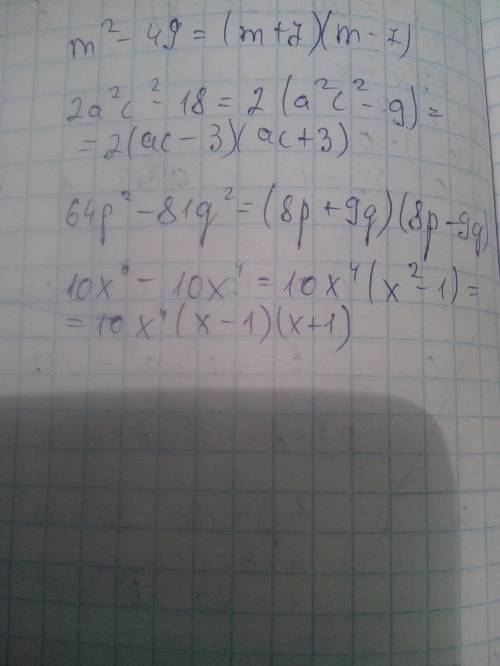 m² - 49 = (m+7)(m-7)
2a²c² - 18 = 2(a²c² - 9) =
= 2(ac - 3)(ac + 3)
64p² - 81q² = (8p + 9q)(8p - 9q)
10x⁶ - 10x⁴ = 10x⁴(x² - 1) =
= 10x⁴(x - 1)(x+1)